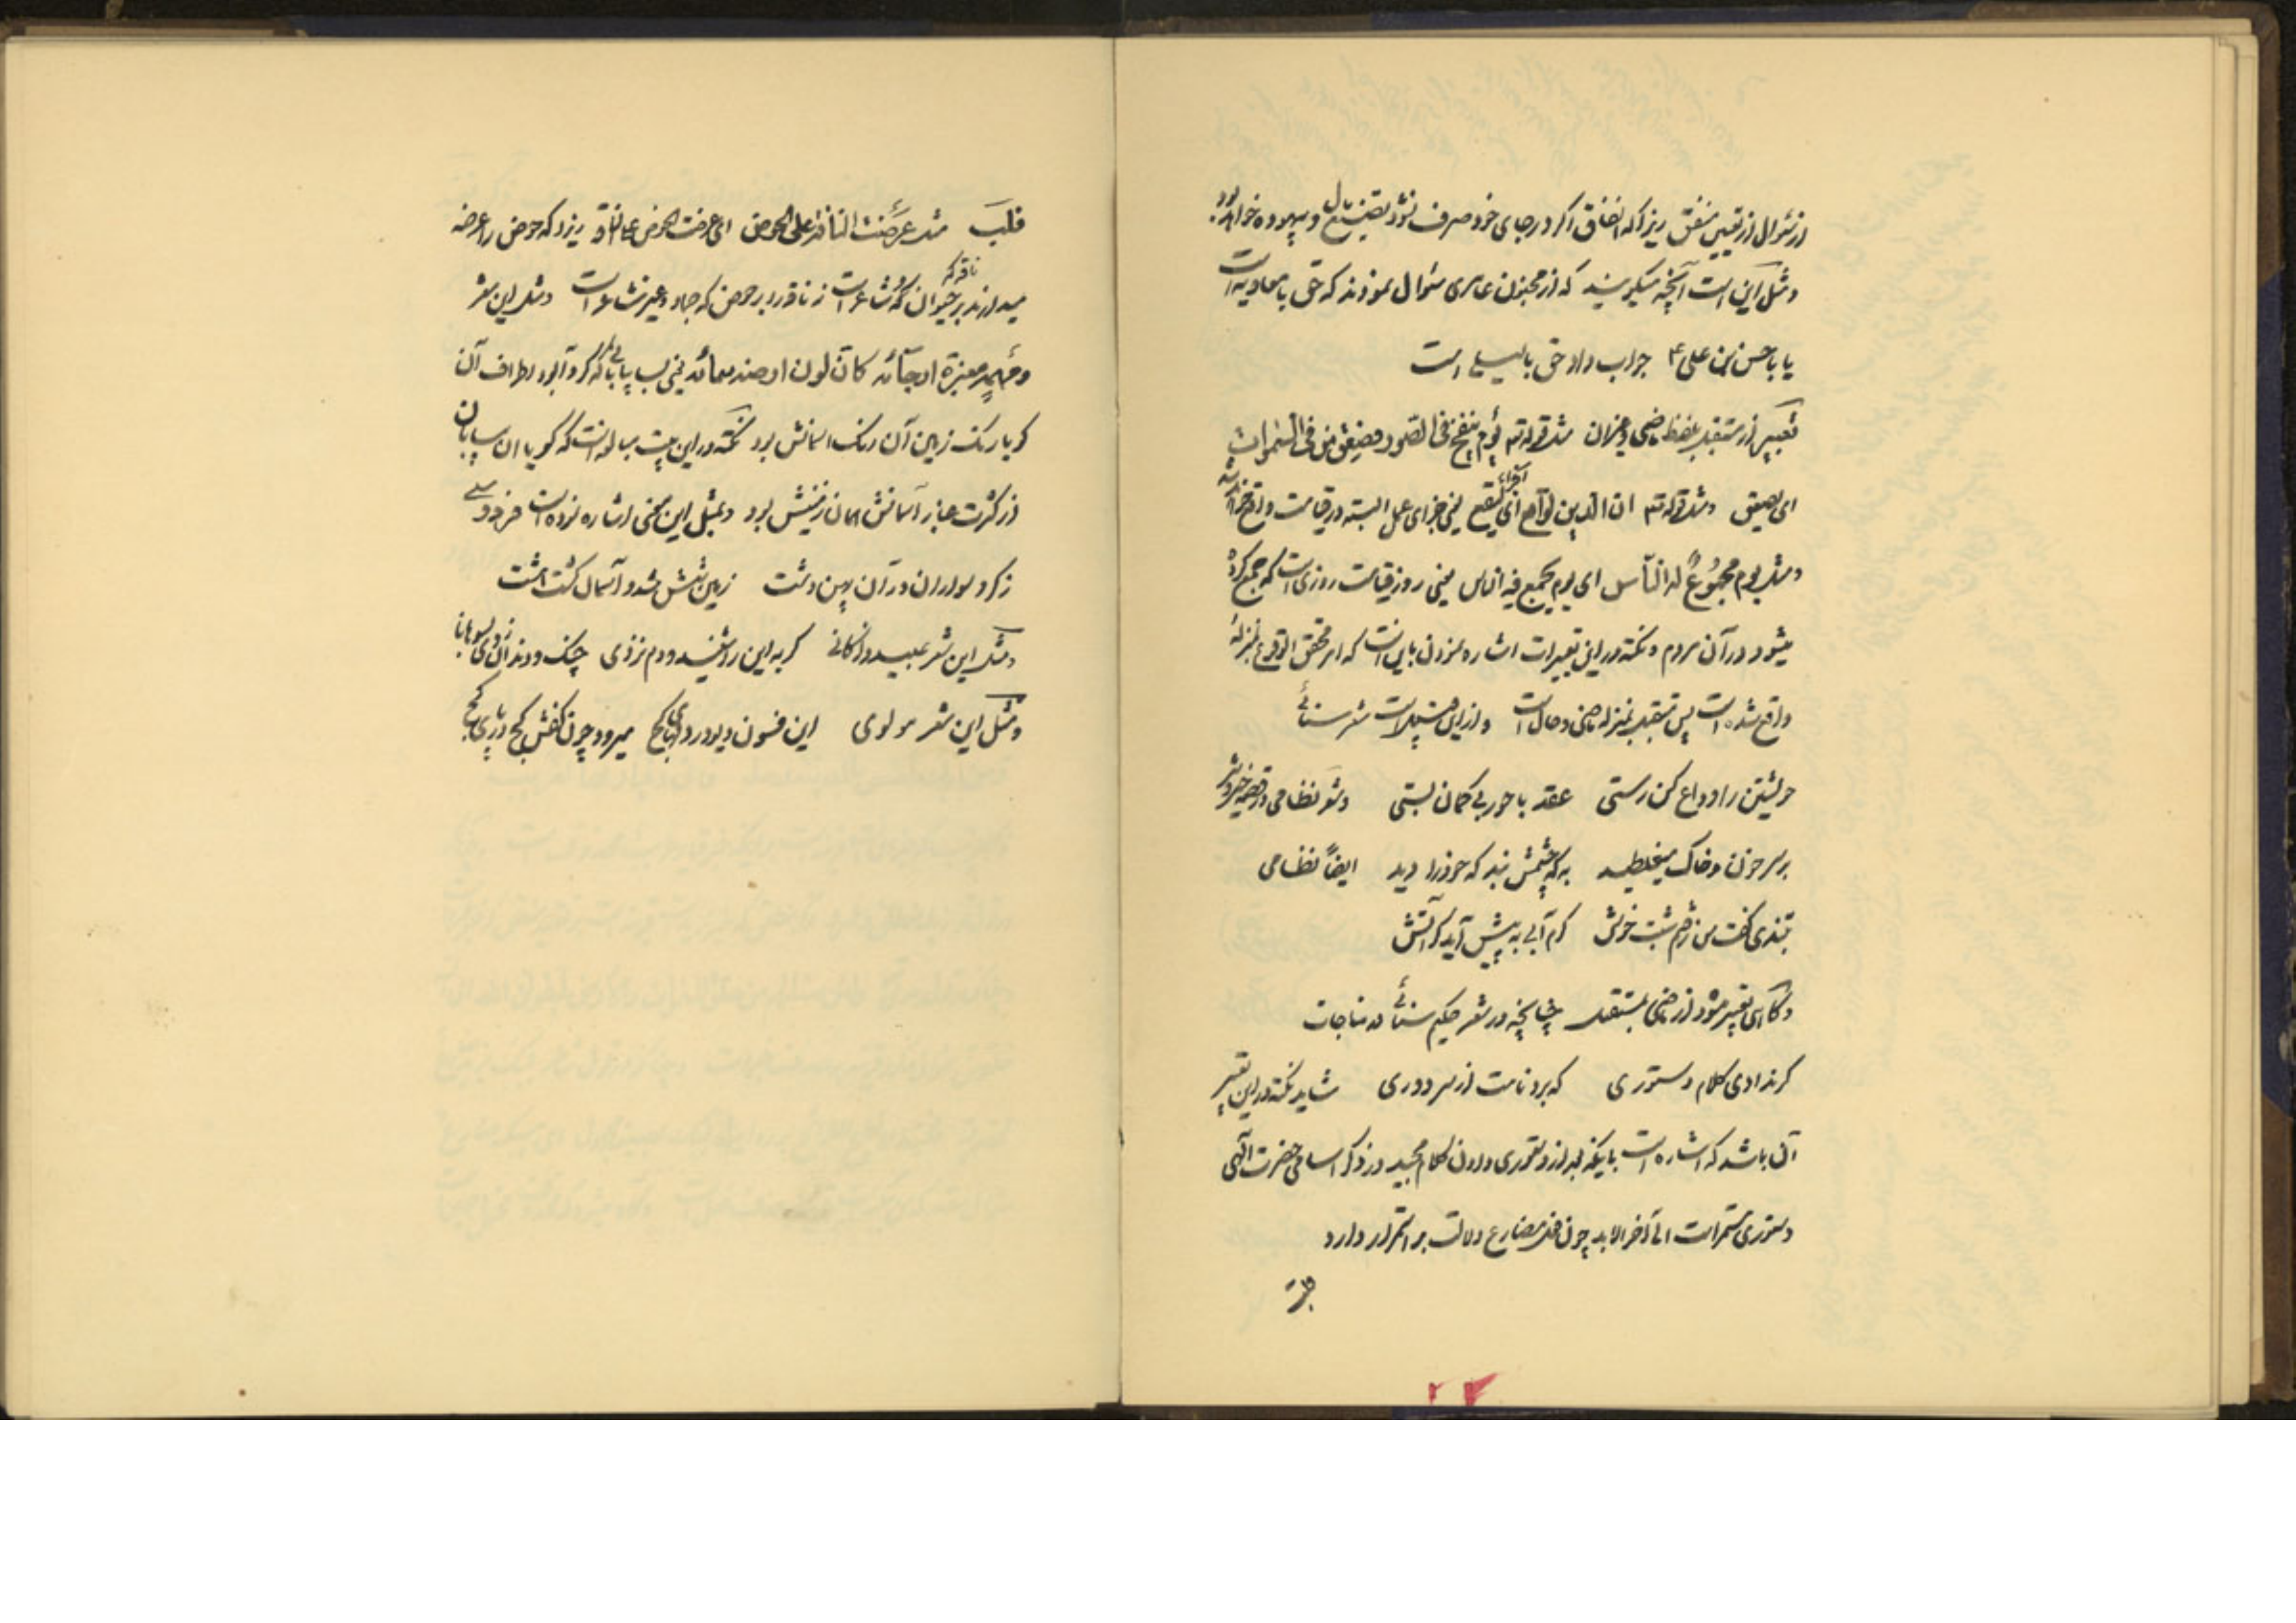 از سئوال از تعیین منفق زیرا که انفاق اگر در جای خود صرف نشود تضییع مال و بیهوده خواهد بود
و مثل این است آنچه میگویند که از مجنون عامری سئوال نمودند که حق با معاویه است
یا با حسن بن علی ع جواب داد حق با لیلی است
تعبیر از مستقبل بلفظ ماضی و میزان مثل قوله تع یوم ینفخ فی الصور فصعق من فی السموات
ای یصعق و مثل قوله تع ان الدین لواقع ای لیقع یعنی جزای عمل البته در قیامت واقع خواهد شد
و مثل یوم مجموع له الناس ای یوم یجمع فیه الناس یعنی روز قیامت روزی است که جمع کرده
میشود در آن مردم و نکته در این تعبیرات اشاره نمودن باین است که امر محقق الوقوع بمنزله
واقع شده است پس مستقبل بمنزله ماضی و حال است و از این قبیل است شعر سنائی
خویشتن را وداع کن رستی عقد با حور بی گمان بستی و شعر نظامی در قصه خیر و شر
بر سر خون و خاک میغلطید به که چشمش نبد که خود را دید ایضاً نظامی
بتندی گفت من رفتم شبت خوش گرم آبی به پیش آید گر آتش
و گاهی تعبیر میشود از ماضی بمستقبل چنانچه در شعر حکیم سنائی در مناجات
گر ندادی کلام دستوری که برد نامت از سر دوری شاید نکته در این تعبیر
آن باشد که اشاره است باینکه دستوری دادن کلام مجید در ذکر اسامی حضرت الهی
دستوری مستمر است الی آخر الابد چون فعل مضارع دلالت بر استمرار دارد
قلب مثل عرضت الناقة علی الحوض ای عرضت الحوض علی الناقة زیرا که حوض را عرضه
میدارند بر حیوان ناقه که مشاعر است نه ناقه را بر حوض که جماد و غیر مشاعر است و مثل این شعر
و مهمه مغبرة ارجائه کان لون ارضه سمائه یعنی بسا بیابانی که گرد آلود اطراف آن
گویا رنگ زمین آن رنگ اسمانش بود نکته در این بیت مبالغه است که گویا ان بیابان
از کثرت غبار آسمانش همان زمینش بود و بمثل این معنی اشاره نموده است فردوسی
ز گرد سواران در آن پهن دشت زمین شش شد و آسمان گشت هشت
و مثل این شعر عبید زاکانی گربه این را شنید و دم نزدی چنگ و دندان زدی بسوهانا
و مثل این شعر مولوی این فسون دیو در دلهای کج میرود چون کفش کج در پای کج